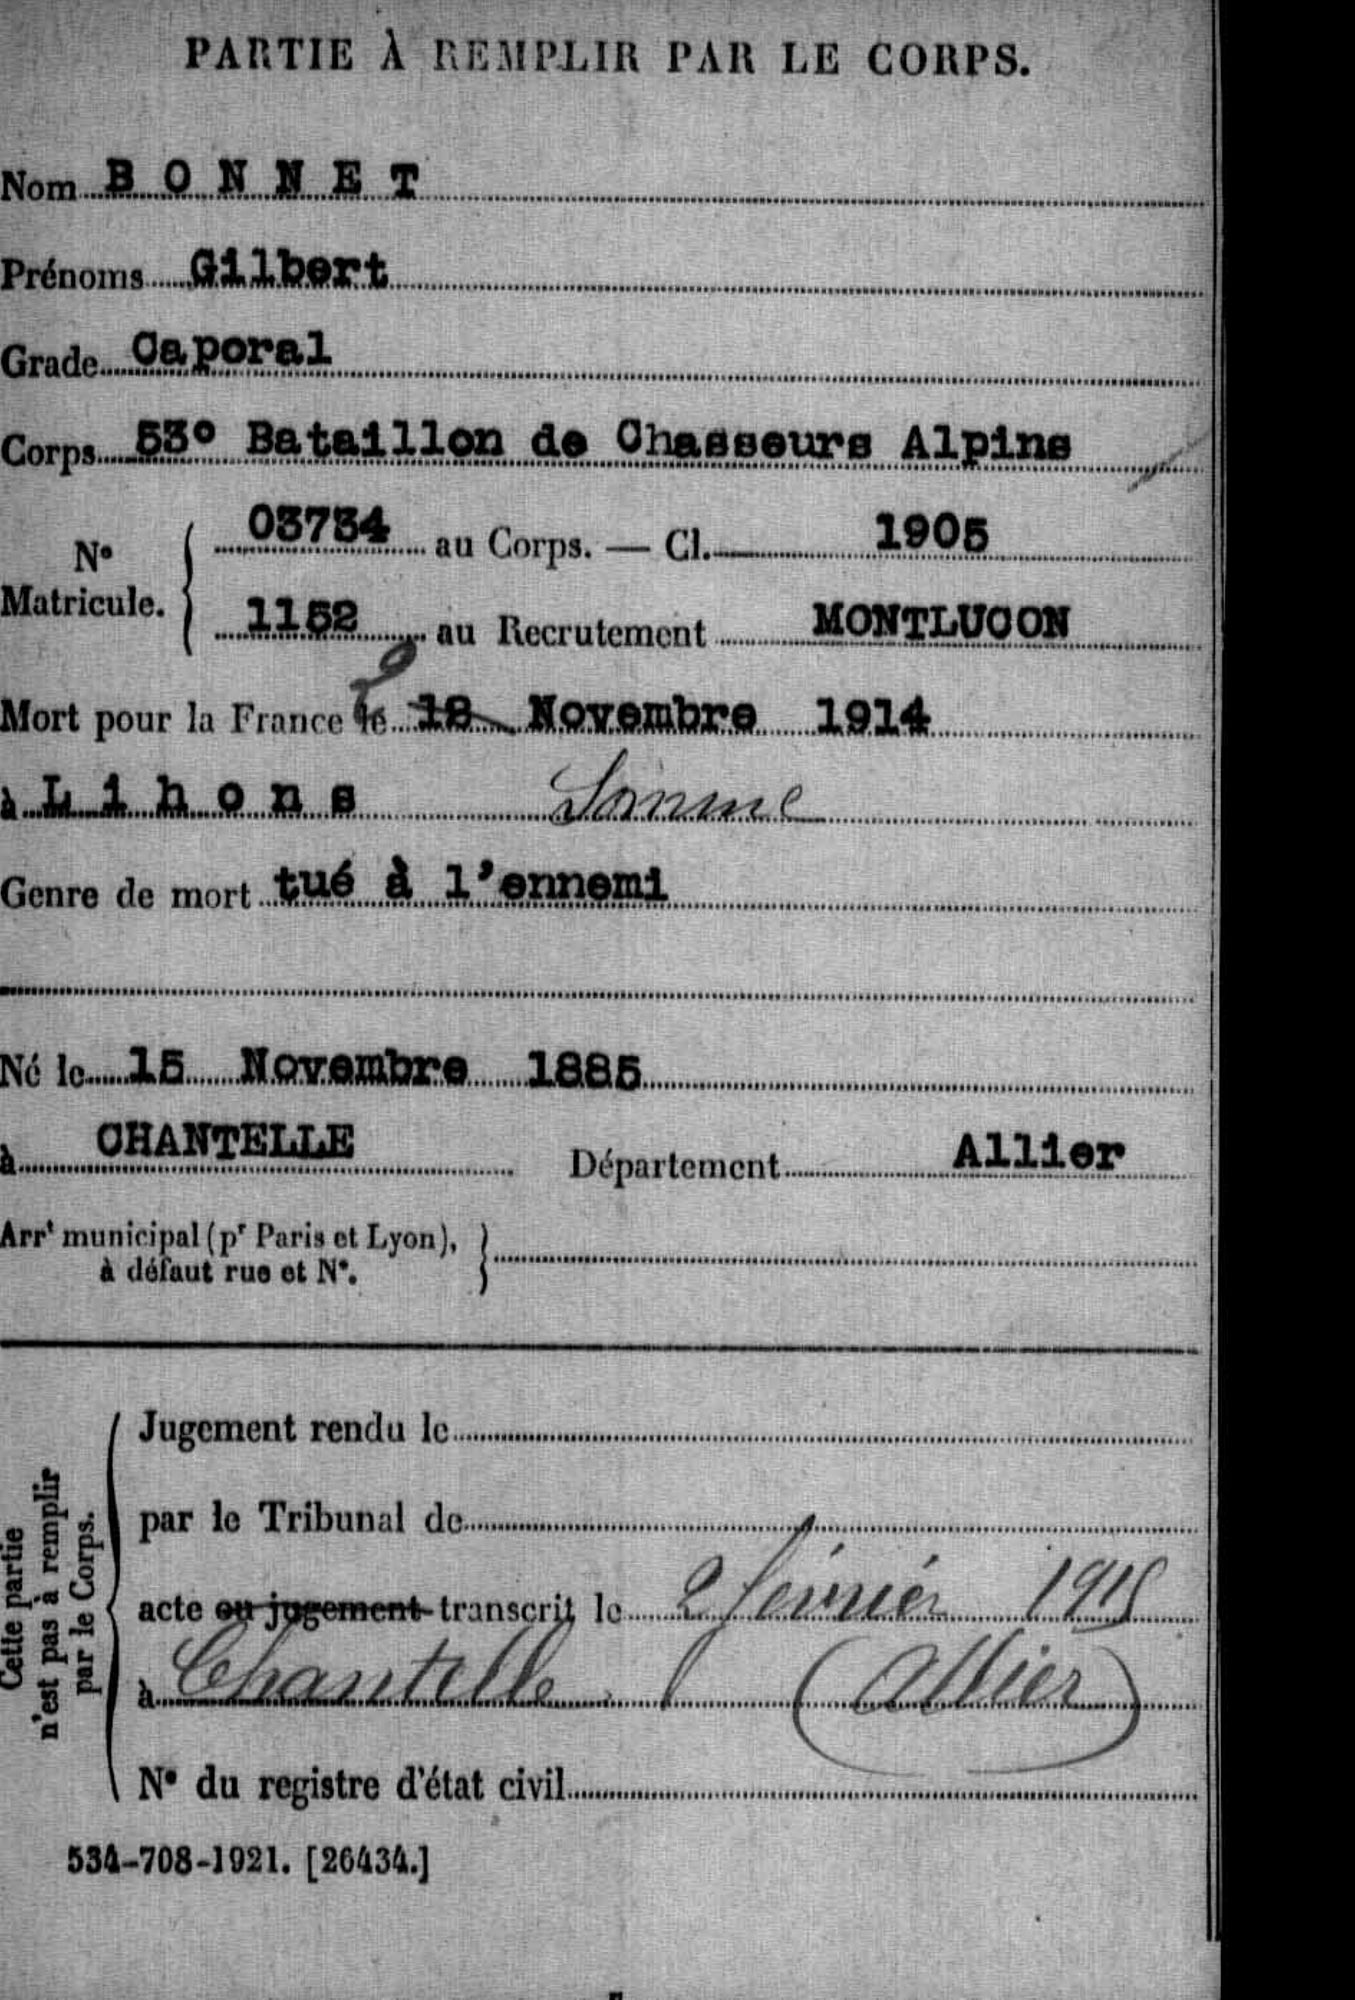 PARTIE À REMPLIR PAR LE CORPS.
Nom BONNET
Prénoms Gilbert
Grade Caporal
Corps 53° Bataillon de Chasseurs Alpins
N° Matricule. 03734 au Corps. — Cl. 1905
1152 au Recrutement MONTLUCON
Mort pour la France le 18 Novembre 1914
à Lihons Somme
Genre de mort tué à l'ennemi
Né le 15 Novembre 1885
à CHANTELLE Département Allier
Arrt municipal (pr Paris et Lyon),
à défaut rue et N°.
Cette partie
n'est pas à remplir
par le Corps.
Jugement rendu le
par le Tribunal de
acte ou jugement transcrit le 2 février 1915
à Chantelle (Allier)
N° du registre d'état civil
534-708-1921. [26434.]